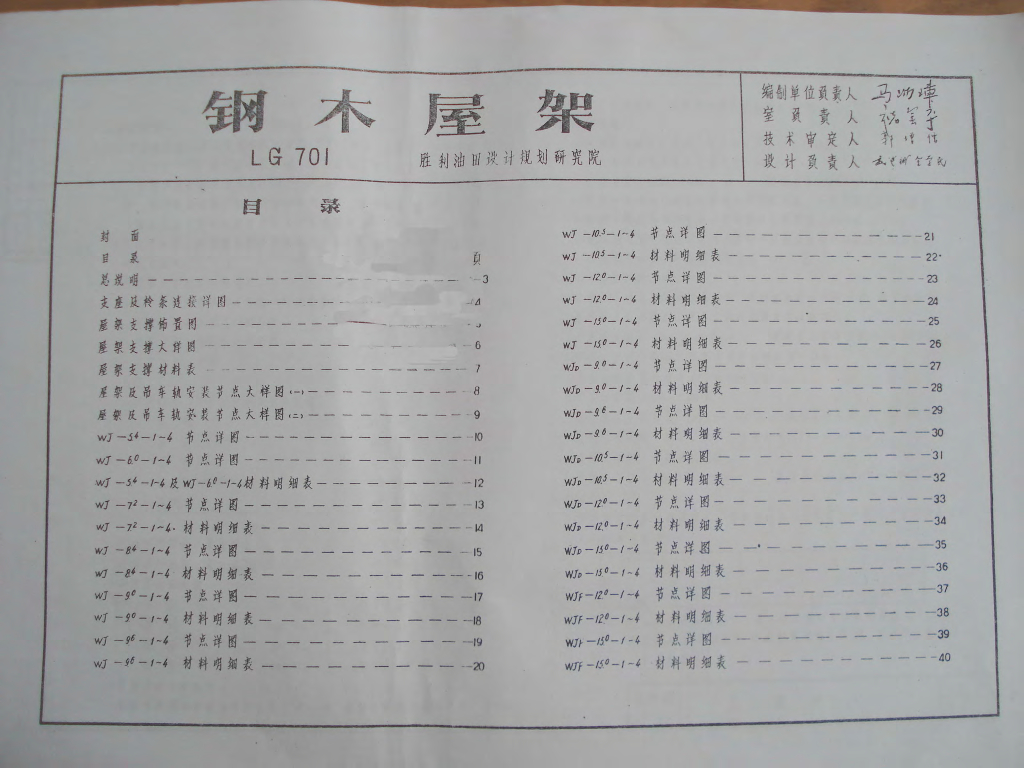 钢木屋架
LG 701 胜利油田设计规划研究院
编制单位负责人
室负责人
技术审定人
设计负责人
目 录
封 面
目 录 页
总说明 3
支座及檩条连接详图 4
屋架支撑佈置图 5
屋架支撑大样图 6
屋架支撑材料表 7
屋架及吊车轨安装节点大样图(一) 8
屋架及吊车轨安装节点大样图(二) 9
WJ-5⁴-1~4 节点详图 10
WJ-6.0-1~4 节点详图 11
WJ-5⁴-1-4及WJ-6⁰-1-4材料明细表 12
WJ-7²-1~4 节点详图 13
WJ-7²-1~4 材料明细表 14
WJ-8⁴-1~4 节点详图 15
WJ-8⁴-1~4 材料明细表 16
WJ-9⁰-1~4 节点详图 17
WJ-9⁰-1~4 材料明细表 18
WJ-9⁶-1~4 节点详图 19
WJ-9⁶-1~4 材料明细表 20
WJ-10.5-1~4 节点详图 21
WJ-10⁵-1~4 材料明细表 22
WJ-12⁰-1~4 节点详图 23
WJ-12.0-1~4 材料明细表 24
WJ-15⁰-1~4 节点详图 25
WJ-15.0-1~4 材料明细表 26
WJD-9.0-1~4 节点详图 27
WJD-9.0-1~4 材料明细表 28
WJD-9.6-1~4 节点详图 29
WJD-9.6-1~4 材料明细表 30
WJD-10.5-1~4 节点详图 31
WJD-10.5-1~4 材料明细表 32
WJD-12.0-1~4 节点详图 33
WJD-12.0-1~4 材料明细表 34
WJD-15⁰-1~4 节点详图 35
WJD-15⁰-1~4 材料明细表 36
WJF-12⁰-1~4 节点详图 37
WJF-12⁰-1~4 材料明细表 38
WJF-15⁰-1~4 节点详图 39
WJF-15⁰-1~4 材料明细表 40